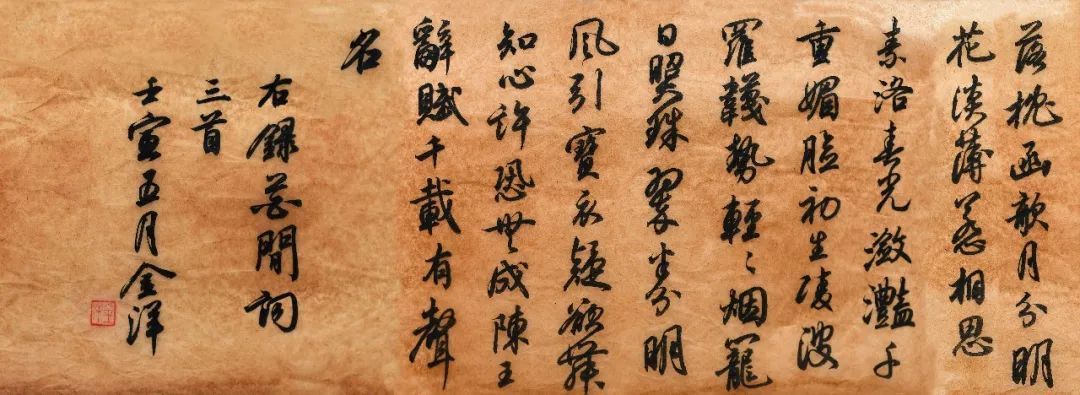 落枕函欹月分明
花淡薄惹相思
素洛春光瀲灩千
重媚臉初生凌波
羅襪勢輕〻烟籠
日照珠翠半分明
風引寶衣疑欲舞
知心許恐無成陳王
辭賦千載有聲
名
右錄花間詞
三首
壬寅五月金洋